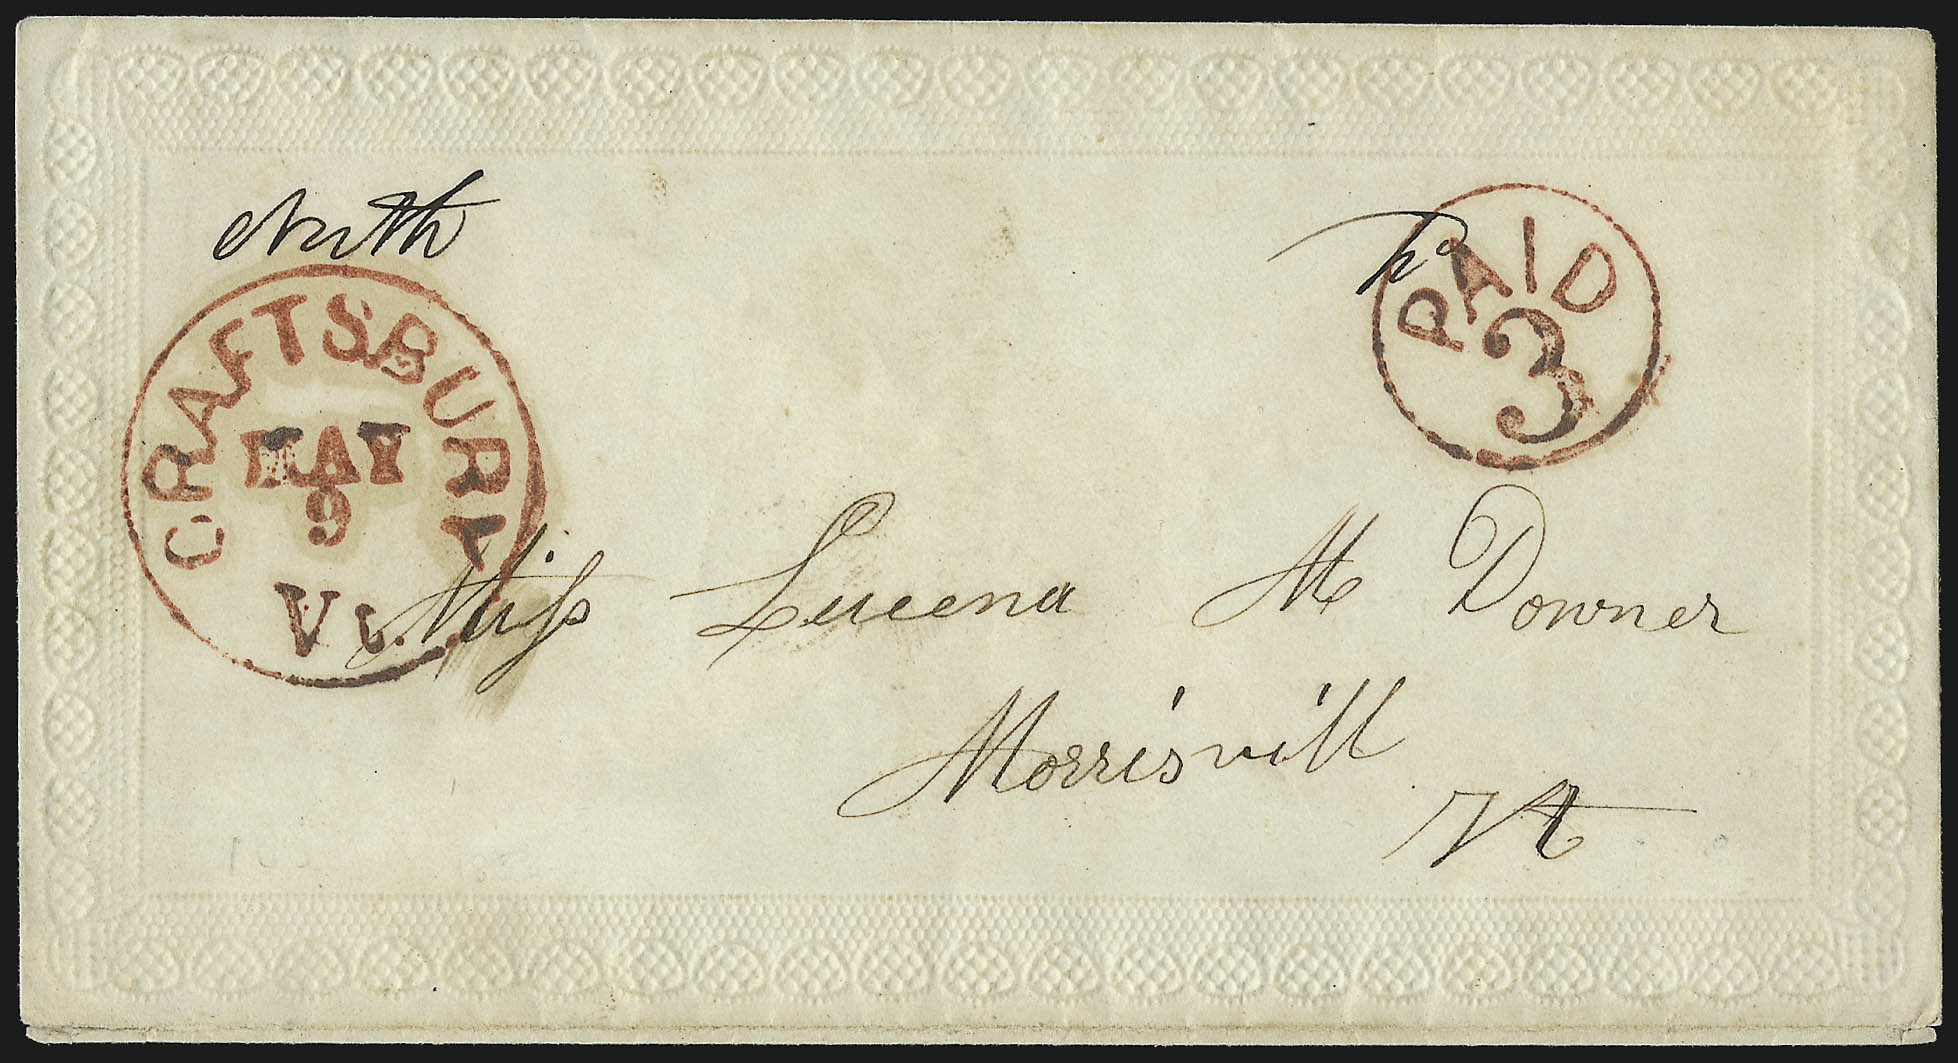 North
CRAFTSBURY
MAY
9
Vt.
PAID
3
Miss Lucena M Downer
Morrisvill
Vt